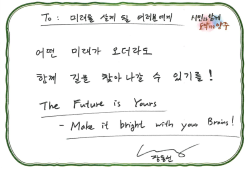 To: 미래를 살게 될 여러분에게
어떤 미래가 오더라도
함께 길을 찾아나갈 수 있기를!
The Future is Yours
- Make it bright with your Brains!
장동선